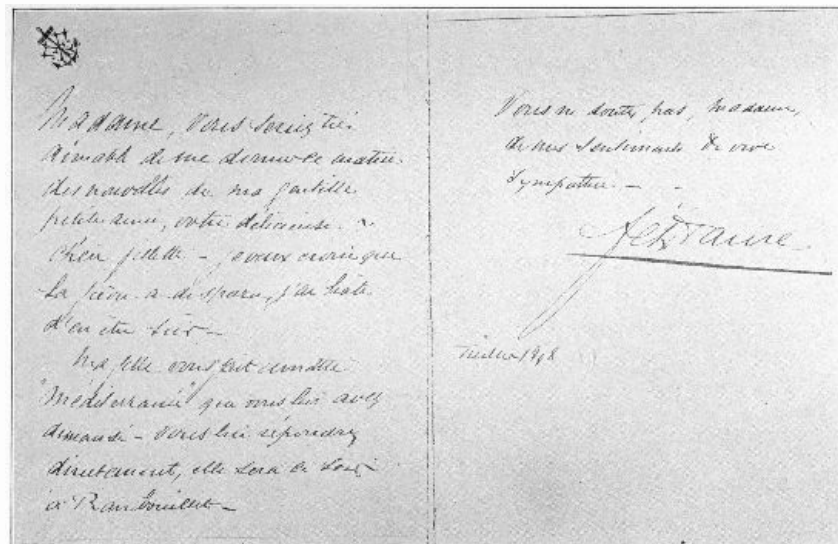 Madame, vous seriez très
aimable de me donner ce matin
des nouvelles de ma gentille
petite amie, votre délicieuse
chère fillette - je veux croire que
la fièvre a disparu, j'ai hâte
d'en être sûr -
Ma fille vous fait remettre
"Méditerranée" que vous lui avez
demandé - Vous lui répondrez
directement, elle sera ce soir
à Rambouillet -
Vous ne doutez pas, madame,
de mes sentiments de vive
sympathie -
Félix Faure
1898